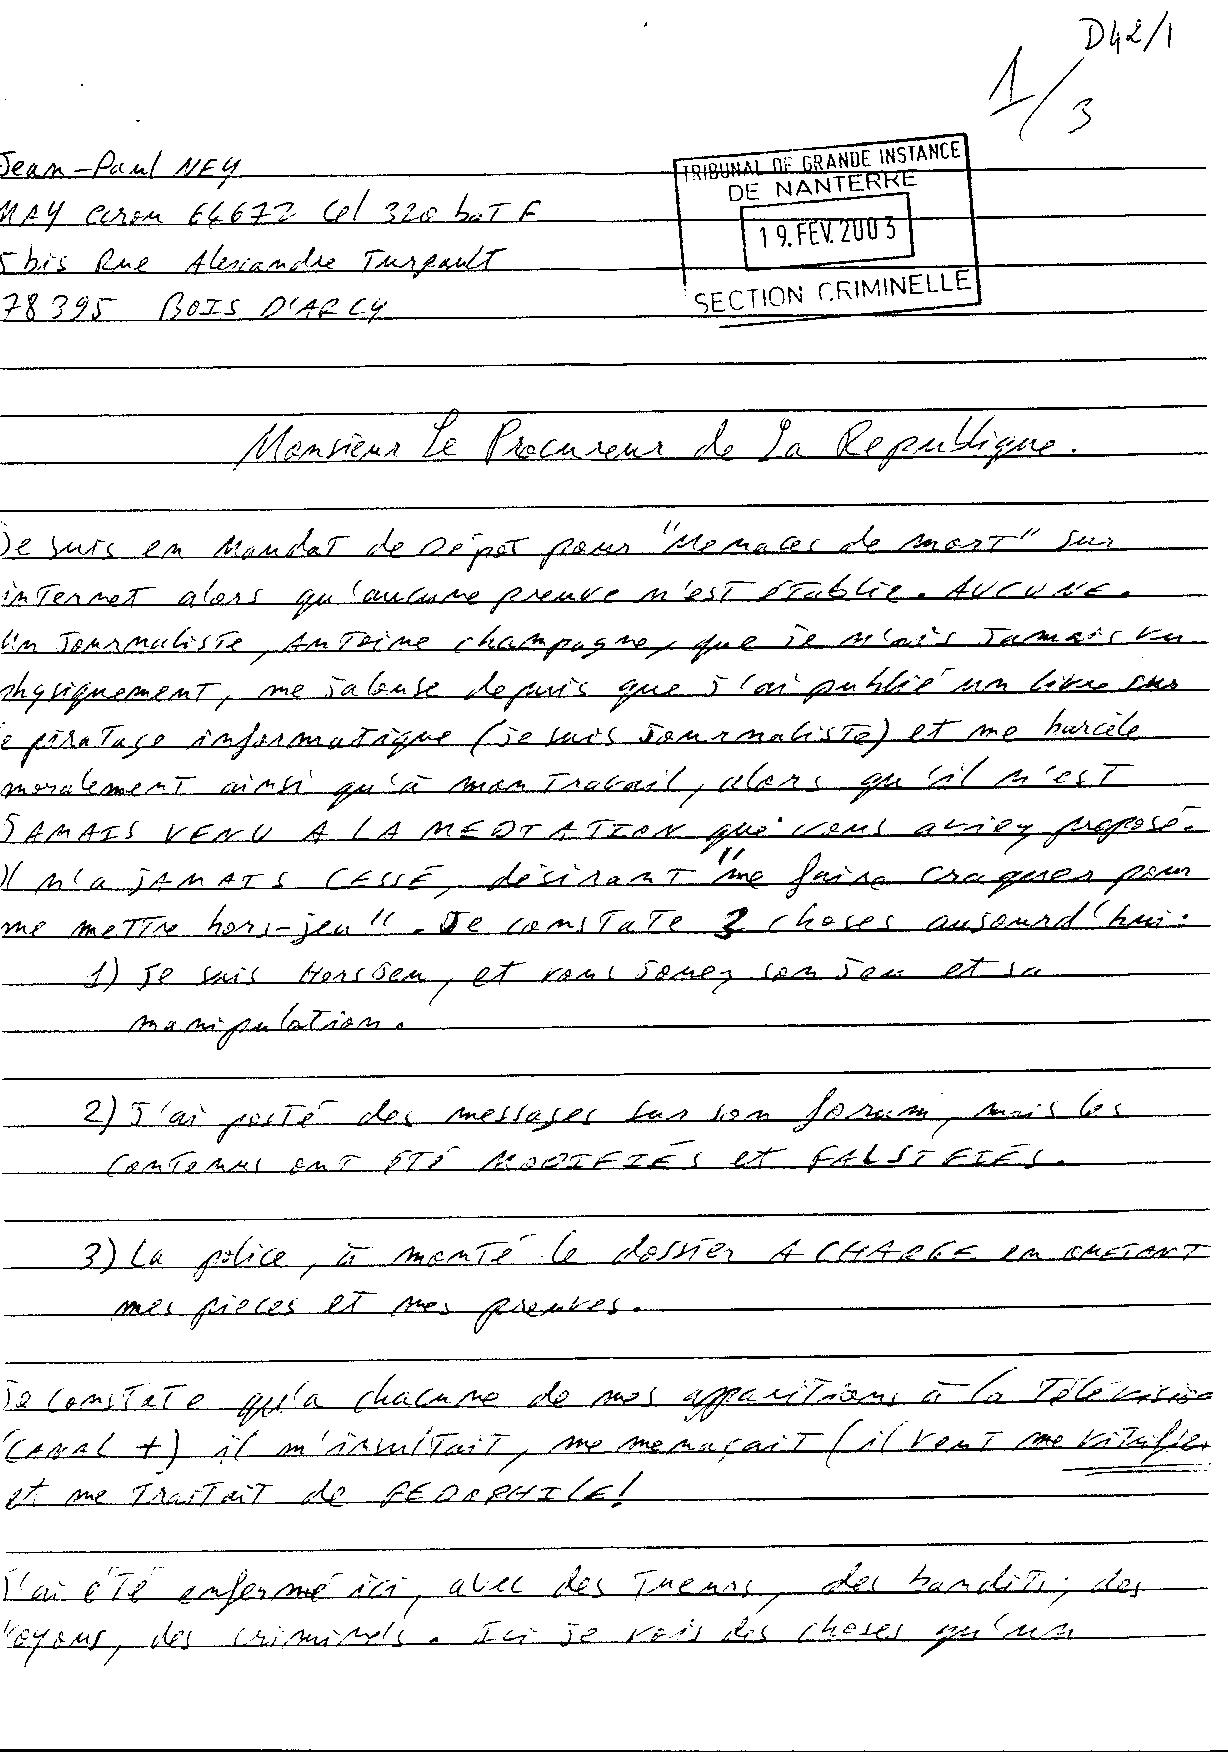 D42/1
1/3
Jean-Paul NEY
MAY ecrou 64672 Cel 320 bat F
5 bis Rue Alexandre Turpault
78395 BOIS D'ARCY
TRIBUNAL DE GRANDE INSTANCE
DE NANTERRE
19. FEV. 2003
SECTION CRIMINELLE
Monsieur Le Procureur de La Republique.
Je suis en Mandat de Dépot pour "Menaces de mort" sur
internet alors qu'aucune preuve n'est établie. AUCUNE.
Un Journaliste, Antoine champagne, que je n'ais Jamais vu
physiquement, me jalouse depuis que j'ai publié un livre sur
le piratage informatique (je suis Journaliste) et me harcèle
moralement ainsi qu'à mon Travail, alors qu'il n'est
JAMAIS VENU A LA MEDIATION que vous aviez proposé.
Il n'a JAMAIS CESSÉ, désirant "me faire craquer pour
me mettre hors-jeu". Je constate 3 choses aujourd'hui:
1) je suis HorsJeu, et vous jouez son jeu et sa
manipulation.
2) J'ai posté des messages sur son forum, mais les
contenus ont été MODIFIÉS et FALSIFIÉS.
3) La police, à monté le dossier A CHARGE en OMETANT
mes pieces et mes preuves.
Je constate qu'a chacune de mes apparitions à la Télévision
(CANAL +) il m'insultait, me menaçait (il veut me vitrifier
et me traitait de PEDOPHILE!
J'ai été enfermé ici, avec des Tueurs, des bandits, des
voyous, des criminels. Ici je vois des choses qu'un